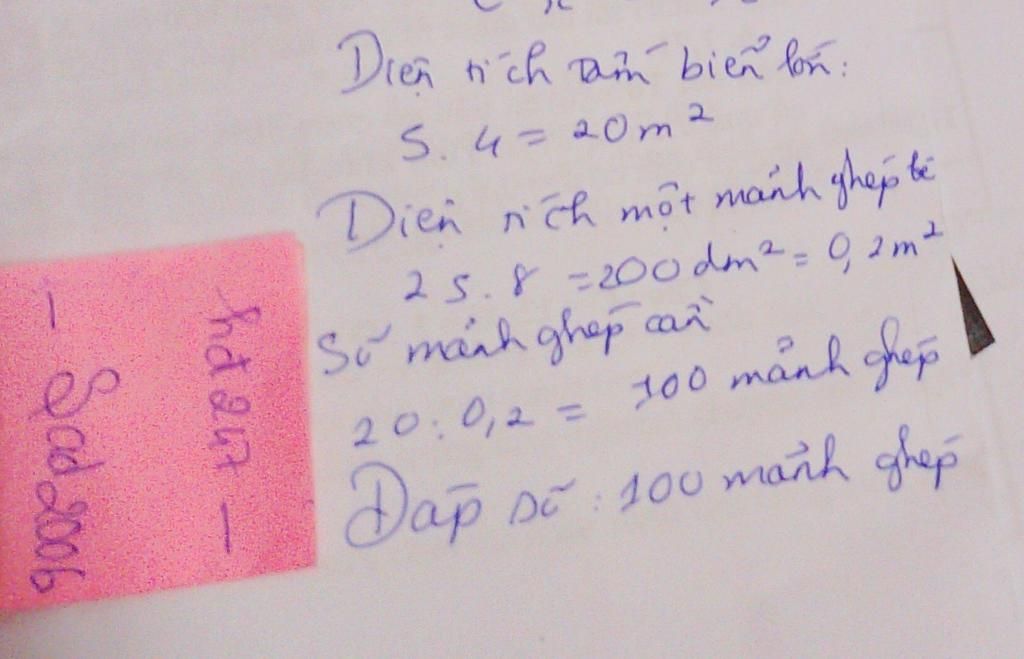 Diện tích tấm biển lớn:
5.4 = 20m²
Diện tích một mảnh ghép bé
25.8 = 200dm² = 0,2m²
Số mảnh ghép cần
20:0,2 = 100 mảnh ghép
Đáp số: 100 mảnh ghép
hd247 -
- Sad2006